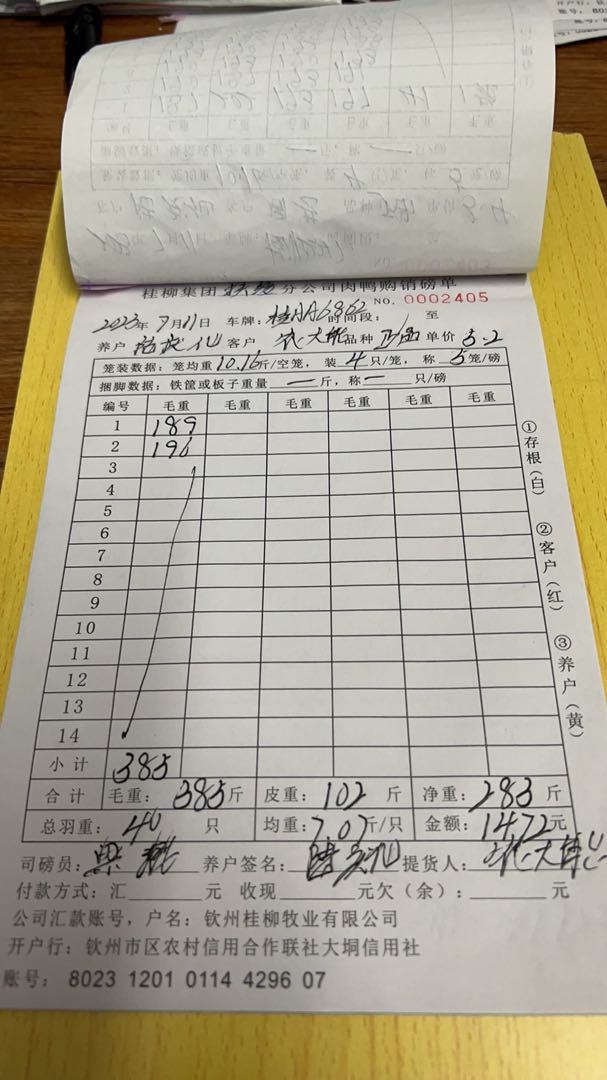 桂柳集团 分公司肉鸭购销磅单
NO. 0002405
2023年 9月11日 车牌：桂AA6862 时间段： 至
养户 客户 代大雄 品种 单价 5.2
笼装数据：笼均重 10.16 斤/空笼，装 4 只/笼，称 5 笼/磅
捆脚数据：铁筐或板子重量 一 斤，称 一 只/磅
编号 毛重 毛重 毛重 毛重 毛重 毛重
1 189
2 196
3
4
5
6
7
8
9
10
11
12
13
14
小计 385
合计 毛重：385斤 皮重：102 斤 净重：283 斤
总羽重：40 只 均重：7.07斤/只 金额：1472元
司磅员： 养户签名： 提货人：代大雄
付款方式：汇 元 收现 元欠（余）： 元
公司汇款账号，户名：钦州桂柳牧业有限公司
开户行：钦州市区农村信用合作联社大垌信用社
账号： 8023 1201 0114 4296 07
①存根（白） ②客户（红） ③养户（黄）